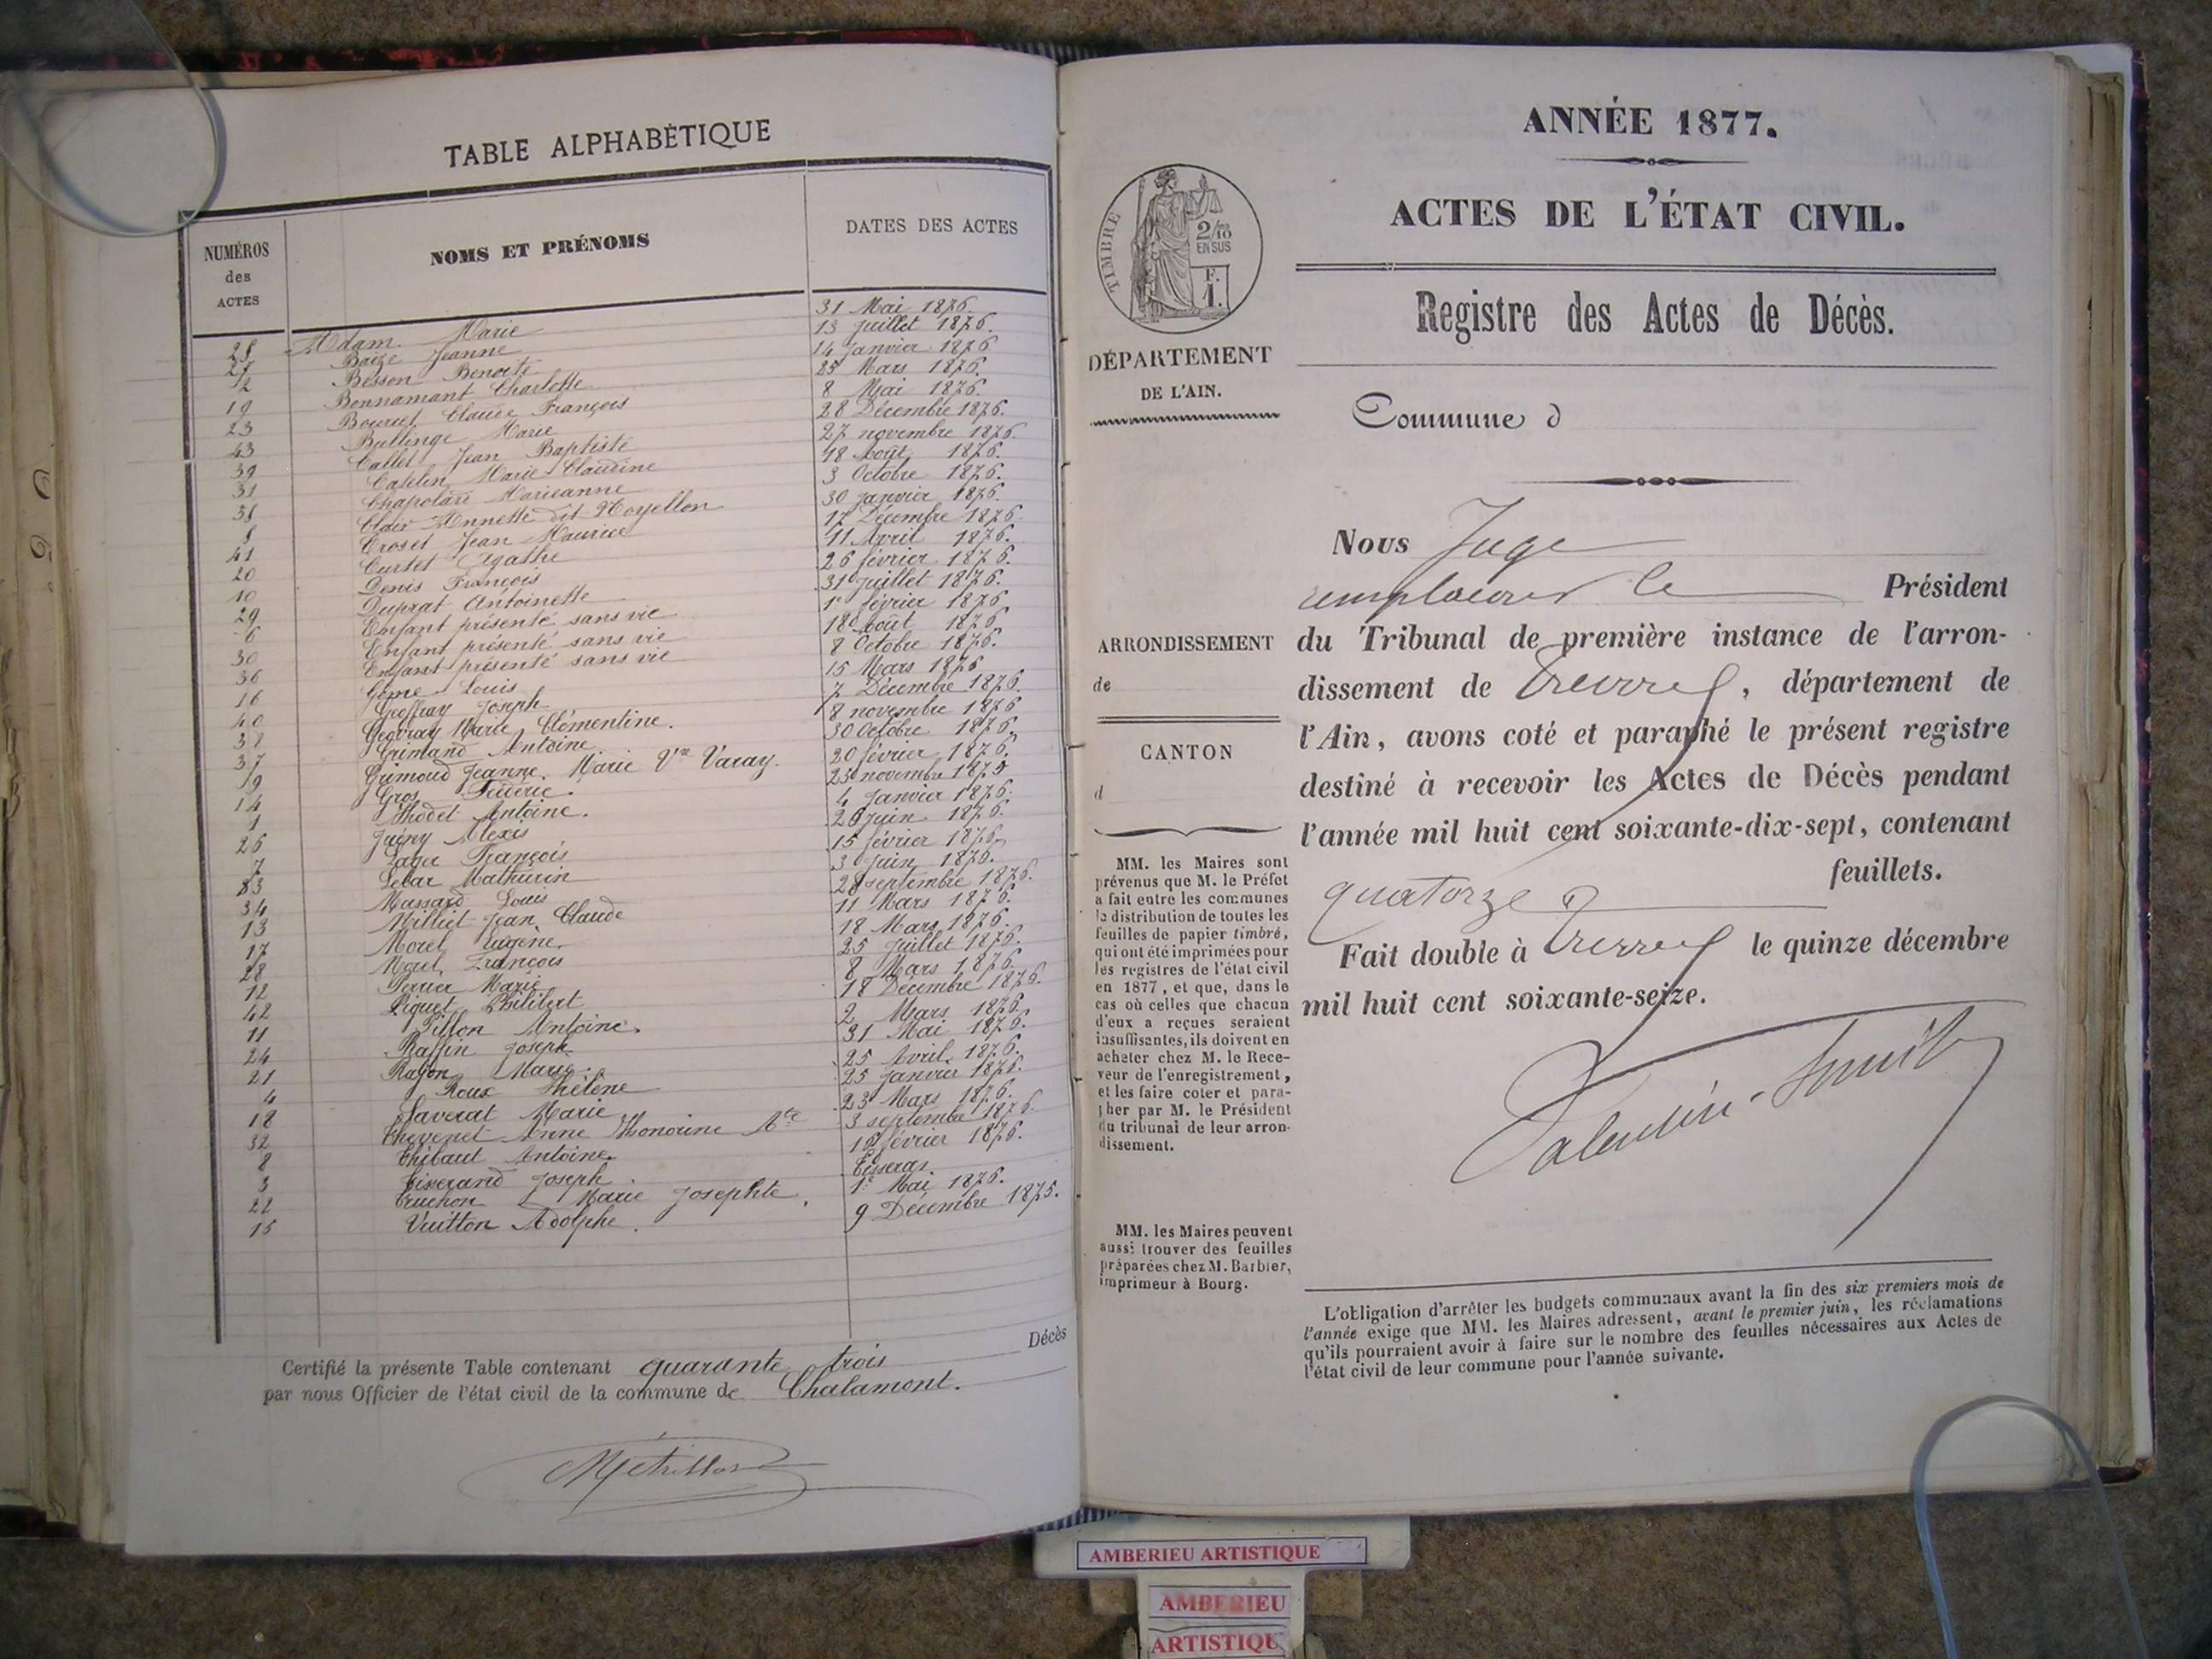 TABLE ALPHABÉTIQUE
NUMÉROS des ACTES
NOMS ET PRÉNOMS
DATES DES ACTES
Adam Marie 31 Mai 1876.
27 Baize Jeanne 13 Juillet 1876.
2 Besson Benoite 14 Janvier 1876
19 Bonnamant Charlotte 25 Mars 1876.
23 Bourret Claude François 8 Mai 1876.
43 Bullinge Marie 28 Décembre 1876.
39 Callet Jean Baptiste 27 novembre 1876.
31 Marie Claudine 18 Août 1876.
Marieanne 3 Octobre 1876.
8 Clair Annette dit 30 Janvier 1876.
41 Croset Jean Maurice 17 Décembre 1876.
20 Curtet Agathe 11 Avril 1876.
10 Denis François 26 février 1876.
29 Duprat Antoinette 31 Juillet 1876.
6 Enfant présenté sans vie 1er février 1876
30 Enfant présenté sans vie 18 Août 1876
36 Enfant présenté sans vie 8 Octobre 1876.
16 Louis 15 Mars 1876
40 Geoffray Joseph 7 Décembre 1876.
38 Marie Clémentine. 8 novembre 1876
37 Grimand Antoine 30 Octobre 1876,
9 Grimoud Jeanne Marie Vve Varay. 20 février 1876,
14 Gros 25 novembre 1875
1 Antoine. 4 Janvier 1876.
26 Alexis 26 Juin 1876.
7 François 15 février 1876,
Lebar Mathurin 3 Juin 1876.
34 Massard Louis 28 septembre 1876.
13 Milliet Jean Claude 11 Mars 1876.
17 Morel Eugène, 18 Mars 1876.
28 Morel François 25 Juillet 1876.
12 Perrier Marie 8 Mars 1876.
42 Piguet Philibert 18 Décembre 1876.
11 Pillon Antoine. 2 Mars 1876.
24 Raffin Joseph 31 Mai 1876.
21 Marie 25 Avril 1876.
4 Roux Hélène 25 Janvier 1876.
18 Saverat Marie 23 Mars 1876.
32 Thevenet Anne Honorine 3 septembre 1876.
8 Thibaut Antoine. 16 février 1876.
3 Tisserand Joseph.
22 Truchon Marie Josephte. 1er Mai 1876.
15 Vuitton Adolphe. 9 Décembre 1875.
Certifié la présente Table contenant quarante trois Décès
par nous Officier de l'état civil de la commune de Chalamont.
ANNÉE 1877.
ACTES DE L'ÉTAT CIVIL.
Registre des Actes de Décès.
TIMBRE
2/10
EN SUS
F.
1.
DÉPARTEMENT
DE L'AIN.
Commune d
Nous Juge
le Président
du Tribunal de première instance de l'arron-
dissement de Trévoux, département de
l'Ain, avons coté et paraphé le présent registre
destiné à recevoir les Actes de Décès pendant
l'année mil huit cent soixante-dix-sept, contenant
quatorze feuillets.
Fait double à Trévoux le quinze décembre
mil huit cent soixante-seize.
Valentin-Smith
ARRONDISSEMENT
de
CANTON
d
MM. les Maires sont
prévenus que M. le Préfet
a fait entre les communes
la distribution de toutes les
feuilles de papier timbré,
qui ont été imprimées pour
les registres de l'état civil
en 1877, et que, dans le
cas où celles que chacun
d'eux a reçues seraient
insuffisantes, ils doivent en
acheter chez M. le Rece-
veur de l'enregistrement,
et les faire coter et para-
pher par M. le Président
du tribunal de leur arron-
dissement.
MM. les Maires peuvent
aussi trouver des feuilles
préparées chez M. Barbier,
imprimeur à Bourg.
L'obligation d'arrêter les budgets communaux avant la fin des six premiers mois de
l'année exige que MM. les Maires adressent, avant le premier juin, les réclamations
qu'ils pourraient avoir à faire sur le nombre des feuilles nécessaires aux Actes de
l'état civil de leur commune pour l'année suivante.
AMBERIEU ARTISTIQUE
AMBERIEU
ARTISTIQU